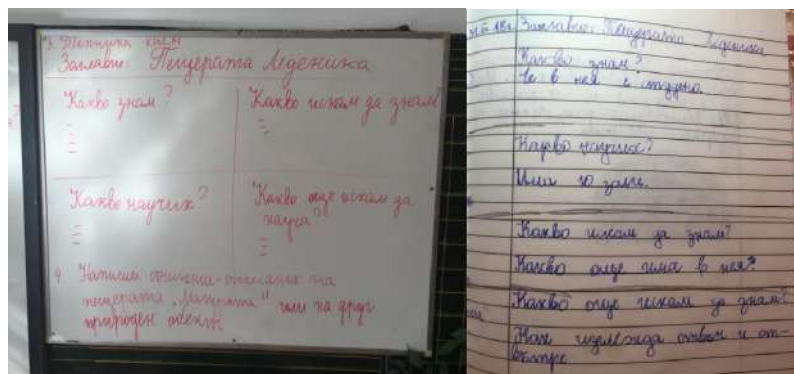 3. Техника
Заглавие: Пещерата Леденика
Какво знам?
Какво искам да знам?
Какво научих?
Какво още искам да
науча?
4. Напиши
пещерата „Магурата“ или на друг
природен обект.
Заглавие: Пещерата Леденика
Какво знам?
Че в нея е студено.
Какво научих?
Има 10 зали.
Какво искам да знам?
Какво още има в нея?
Какво още искам да знам?
Как изглежда отвън и от-
вътре